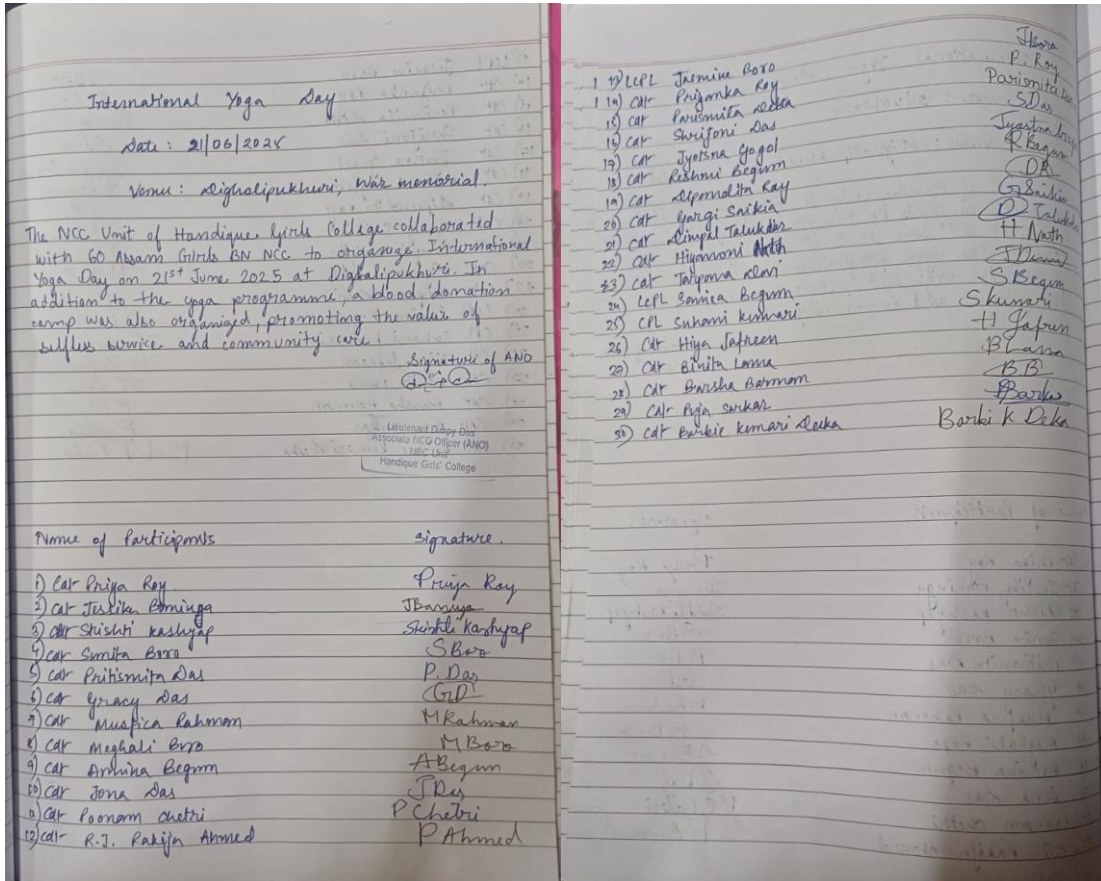 International Yoga Day
Date : 21/06/2025
Venue : Dighalipukhuri, War memorial.
The NCC Unit of Handique Girls College collaborated
with 60 Assam Girls BN NCC to organize International
Yoga Day on 21st June, 2025 at Dighalipukhuri. In
addition to the yoga programme, a blood donation
camp was also organized, promoting the value of
selfless service and community care.
Signature of ANO
Lieutenant Dimpy Das
Associate NCC Officer (ANO)
NCC Unit
Handique Girls' College
Name of Participants Signature.
1) Cdt Priya Roy Priya Roy
2) Cdt Jessika
3) Cdt Shishti Kashyap Shishti Kashyap
4) Cdt Smita Boro S Boro
5) Cdt Pritismita Das P. Das
6) Cdt Gracy Das GD
7) Cdt Musfica Rahman M Rahman
8) Cdt Meghali Boro M Boro
9) Cdt Begum A Begum
10) Cdt Jona Das J Das
11) Cdt Poonam Chetri P Chetri
12) Cdt R.J. Rakija Ahmed P Ahmed
13) LCPL Jasmine Boro J Boro
14) Cdt Priyanka Roy P. Roy
15) Cdt Parismita Deka Parismita
16) Cdt Shrijoni Das S Das
17) Cdt Jyotsna Gogoi
18) Cdt Reshmi Begum R Begum
19) Cdt Ray DR
20) Cdt Gargi Saikia G Saikia
21) Cdt Dimpal Talukdar D Talukdar
22) Cdt Hiyamoni Nath H Nath
23) Cdt Devi
24) LCPL Samira Begum S Begum
25) CPL Suhani Kumari S Kumari
26) Cdt Hiya Jafreen H Jafren
27) Cdt Binita Lama B Lama
28) Cdt Barsha Barman BB
29) Cdt Puja Sarkar
30) Cdt Barbie Kumari Deka Barbi K Deka